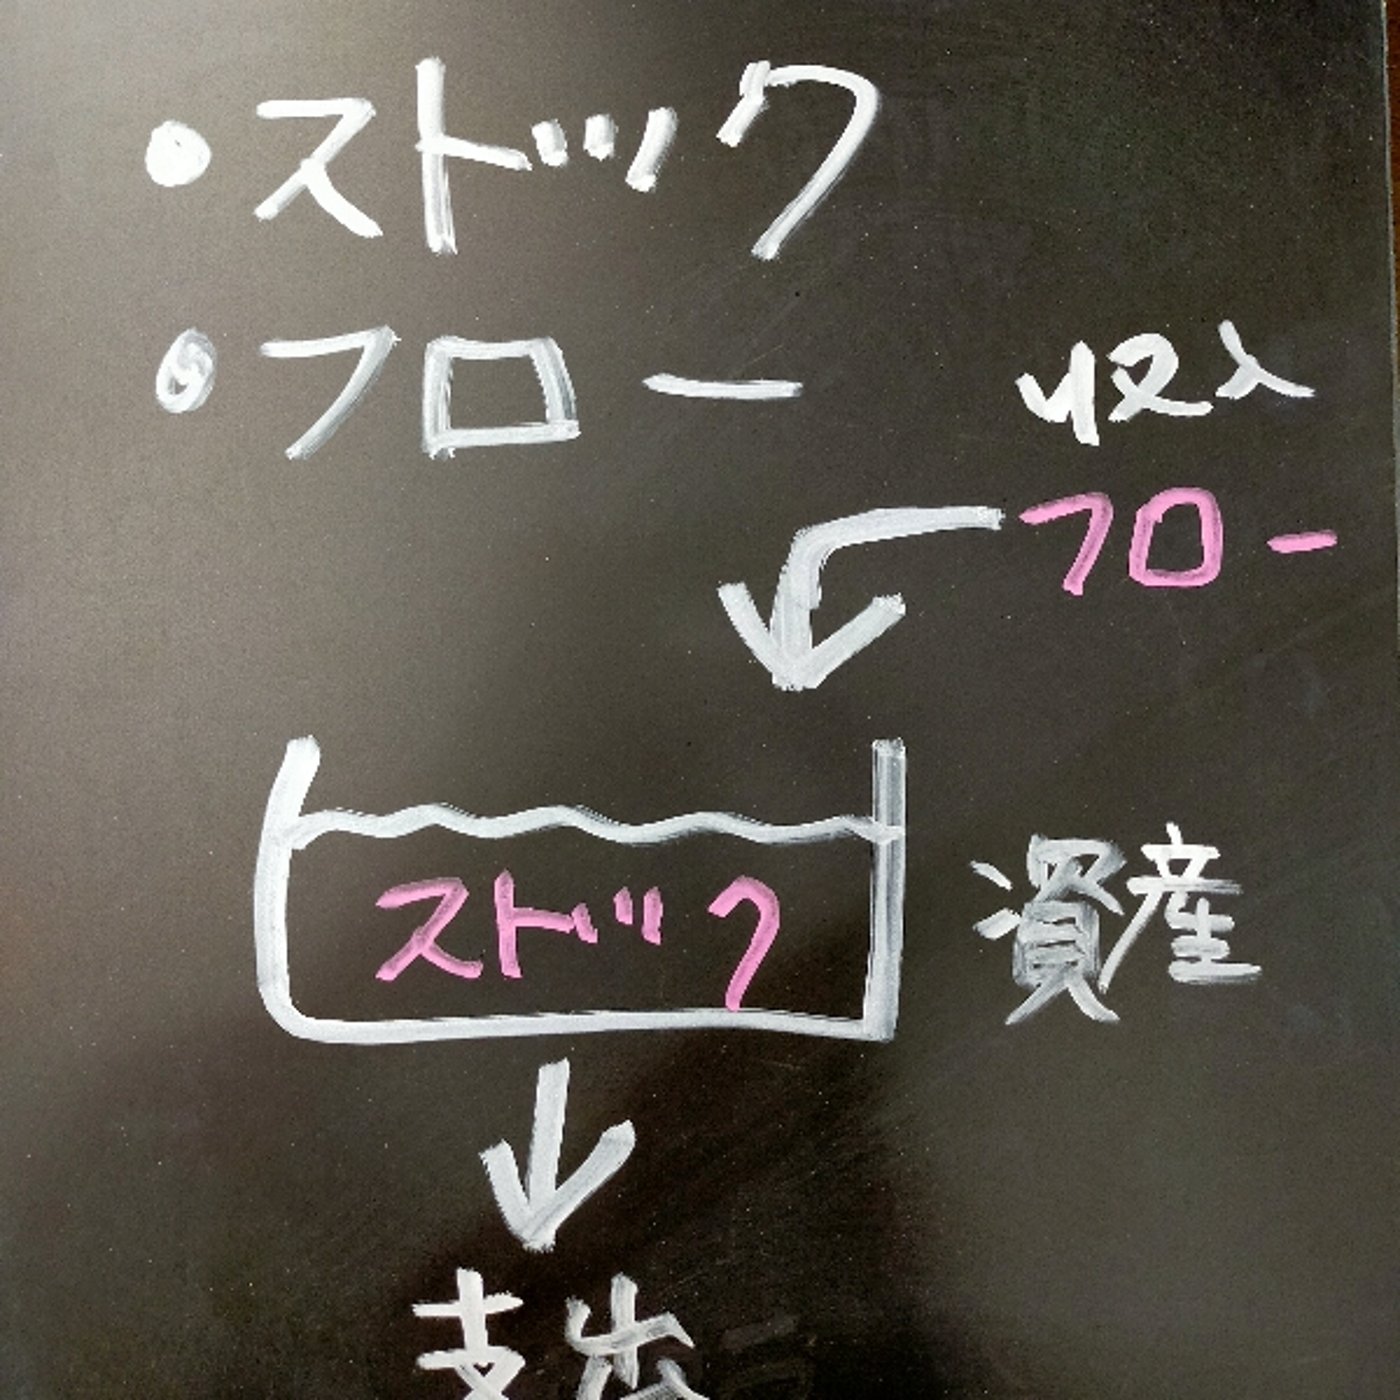 ・ストック
・フロー
収入
フロー
ストック
資産
支出